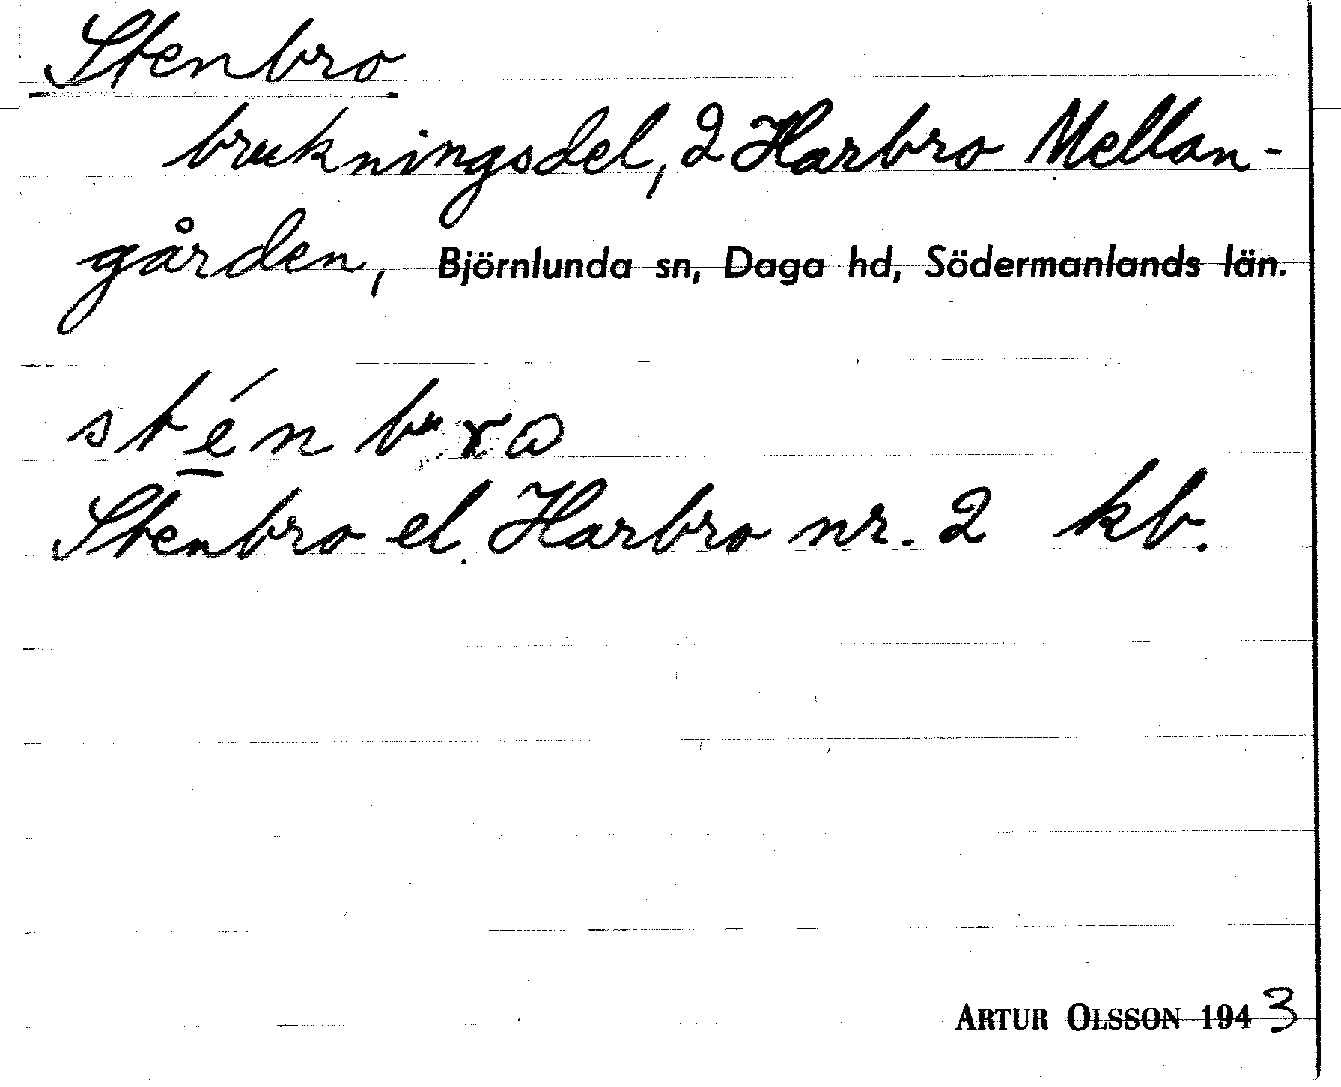 Stenbro
brukningsdel, 2 Harbro Mellan-
gården, Björnlunda sn, Daga hd, Södermanlands län.
sté̠n b
Stenbro el. Harbro nr. 2 kb.
ARTUR OLSSON 1943